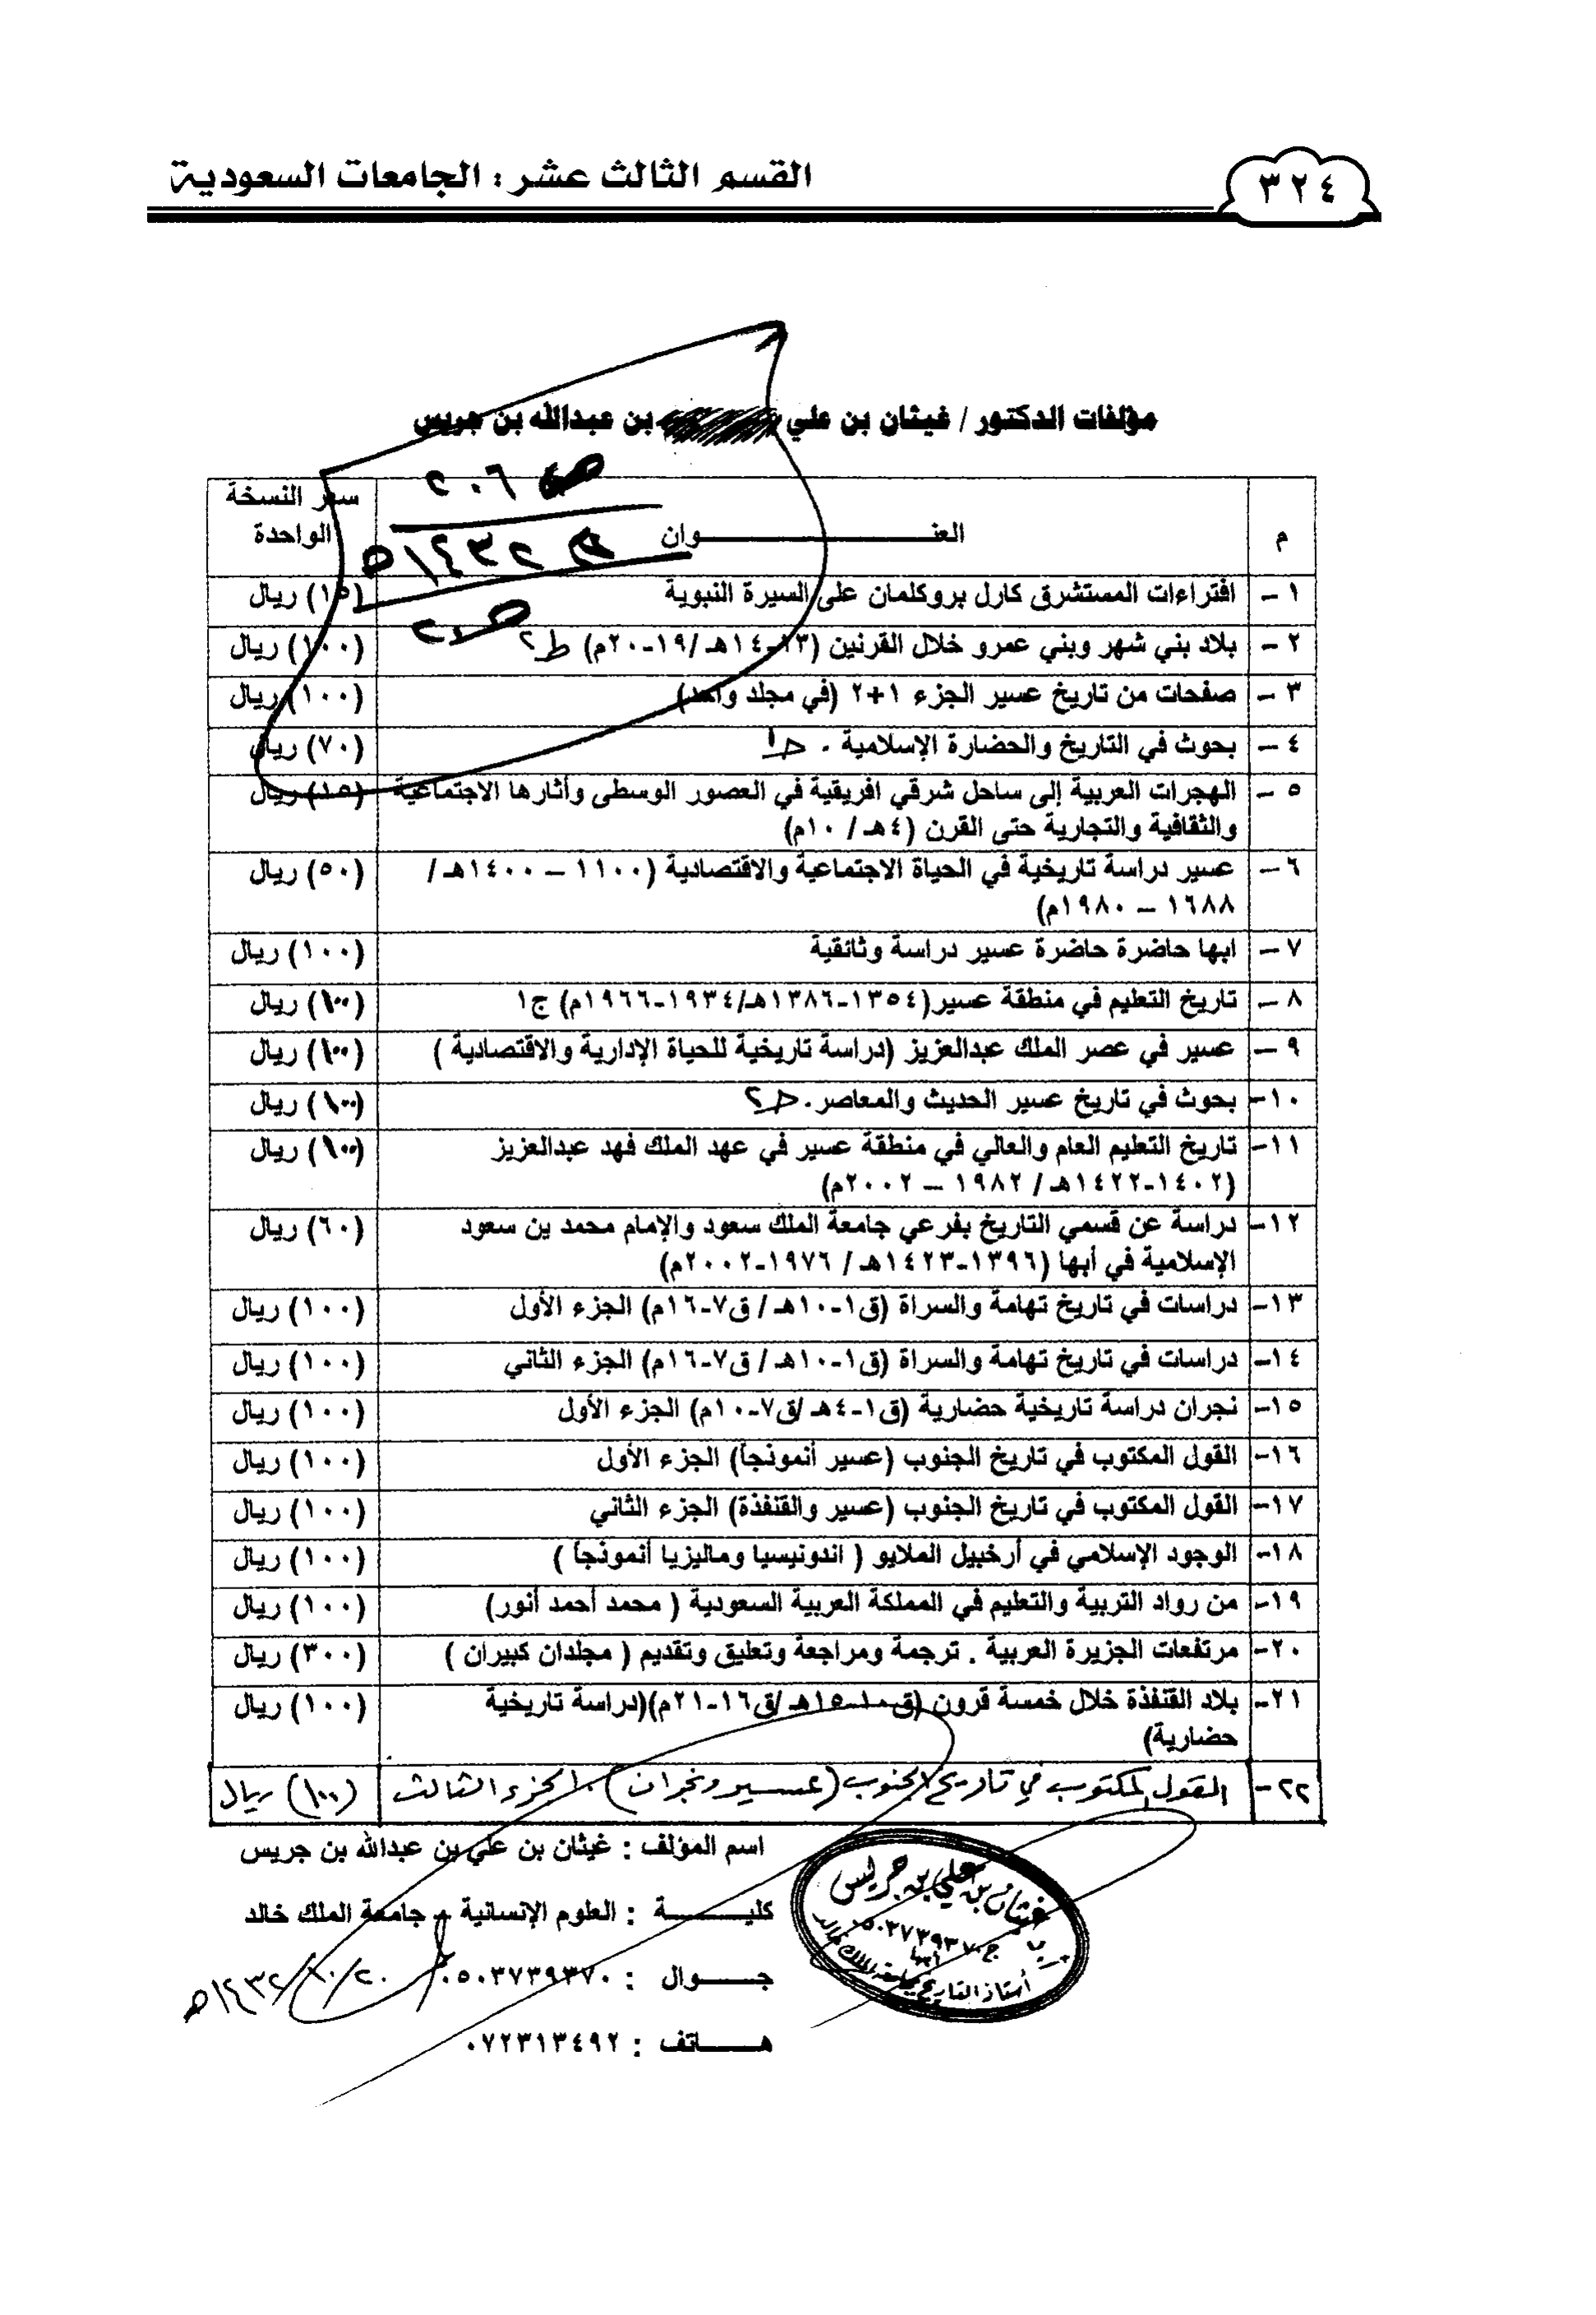 القسم الثالث عشر : الجامعات السعودية
٣٢٤
مؤلفات الدكتور / غيثان بن علي بن عبدالله بن جريس
م العنـــــــــوان سعر النسخة الواحدة
ص ٢٠٦
١٤٣٢هـ
١- افتراءات المستشرق كارل بروكلمان على السيرة النبوية (١٥) ريال
٢- بلاد بني شهر وبني عمرو خلال القرنين (١٣-١٤هـ /١٩-٢٠م) ط٢ (١٠٠) ريال
٣- صفحات من تاريخ عسير الجزء ١+٢ (في مجلد واحد) (١٠٠) ريال
٤- بحوث في التاريخ والحضارة الإسلامية . ط١ (٧٠) ريال
٥- الهجرات العربية إلى ساحل شرقي افريقية في العصور الوسطى وأثارها الاجتماعية (١٥) ريال
والثقافية والتجارية حتى القرن (٤هـ / ١٠م)
٦- عسير دراسة تاريخية في الحياة الاجتماعية والاقتصادية (١١٠٠ – ١٤٠٠هـ / (٥٠) ريال
١٦٨٨ – ١٩٨٠م)
٧- ابها حاضرة حاضرة عسير دراسة وثانقية (١٠٠) ريال
٨- تاريخ التعليم في منطقة عسير(١٣٥٤-١٣٨٦هـ/١٩٣٤-١٩٦٦م) ج١ (١٠٠) ريال
٩- عسير في عصر الملك عبدالعزيز (دراسة تاريخية للحياة الإدارية والاقتصادية ) (١٠٠) ريال
١٠- بحوث في تاريخ عسير الحديث والمعاصر. ط٢ (١٠٠) ريال
١١- تاريخ التعليم العام والعالي في منطقة عسير في عهد الملك فهد عبدالعزيز (١٠٠) ريال
(١٤٠٢-١٤٢٢هـ / ١٩٨٢ – ٢٠٠٢م)
١٢- دراسة عن قسمي التاريخ بفرعي جامعة الملك سعود والإمام محمد بن سعود (٦٠) ريال
الإسلامية في أبها (١٣٩٦-١٤٢٣هـ / ١٩٧٦-٢٠٠٢م)
١٣- دراسات في تاريخ تهامة والسراة (ق١-١٠هـ / ق٧-١٦م) الجزء الأول (١٠٠) ريال
١٤- دراسات في تاريخ تهامة والسراة (ق١-١٠هـ / ق٧-١٦م) الجزء الثاني (١٠٠) ريال
١٥- نجران دراسة تاريخية حضارية (ق١-٤هـ /ق٧-١٠م) الجزء الأول (١٠٠) ريال
١٦- القول المكتوب في تاريخ الجنوب (عسير أنموذجاً) الجزء الأول (١٠٠) ريال
١٧- القول المكتوب في تاريخ الجنوب (عسير والقنفذة) الجزء الثاني (١٠٠) ريال
١٨- الوجود الإسلامي في أرخبيل الملايو ( اندونيسيا وماليزيا أنموذجاً ) (١٠٠) ريال
١٩- من رواد التربية والتعليم في المملكة العربية السعودية ( محمد أحمد أنور) (١٠٠) ريال
٢٠- مرتفعات الجزيرة العربية . ترجمة ومراجعة وتعليق وتقديم ( مجلدان كبيران ) (٣٠٠) ريال
٢١- بلاد القنفذة خلال خمسة قرون (ق١٠-١٥هـ /ق١٦-٢١م)(دراسة تاريخية (١٠٠) ريال
حضارية)
٢٢- القول المكتوب في تاريخ الجنوب (عسير ونجران) . الجزء الثالث (١٠٠) ريال
اسم المؤلف : غيثان بن علي بن عبدالله بن جريس
كليـــــة : العلوم الإنسانية – جامعة الملك خالد
جـــوال : ٠٥٠٣٧٣٩٣٧٠
٢٠/١٠/١٤٣٢هـ
هـــاتف : ٠٧٢٣١٣٤٩٢
غيثان بن علي بن جريس
ج ٠٥٠٣٧٣٩٣٧٠
أبها
أستاذ التاريخ بجامعة الملك خالد